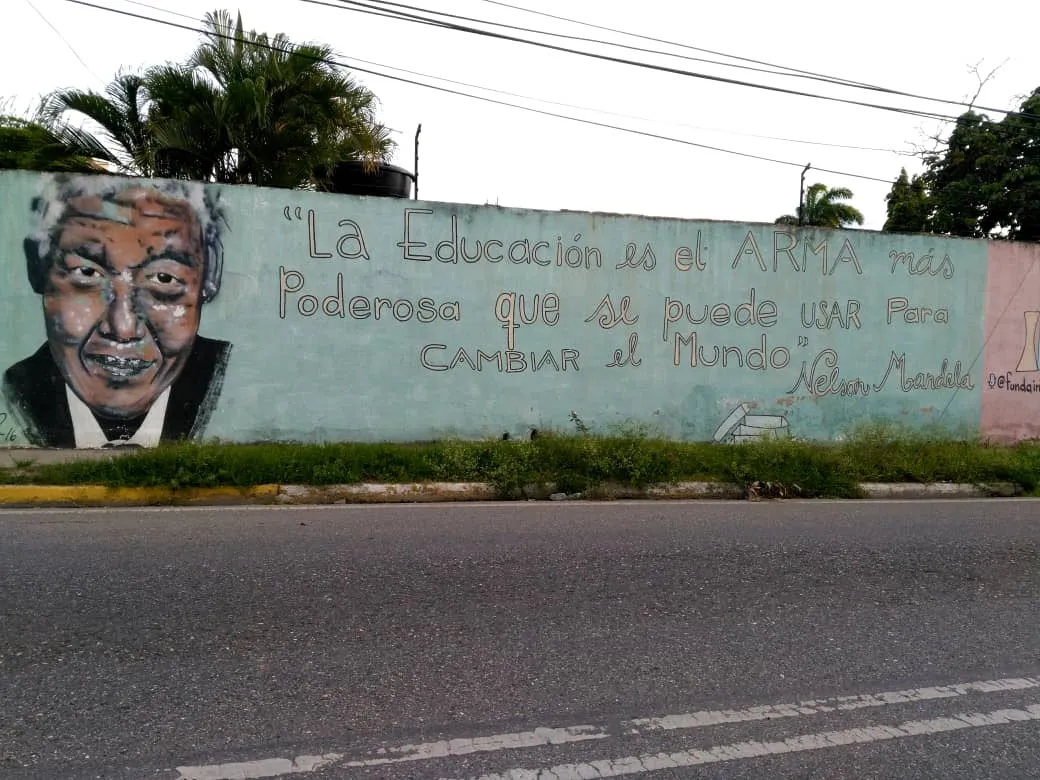 “La Educación es el ARMA más
Poderosa que se puede USAR Para
CAMBIAR el Mundo”
Nelson Mandela